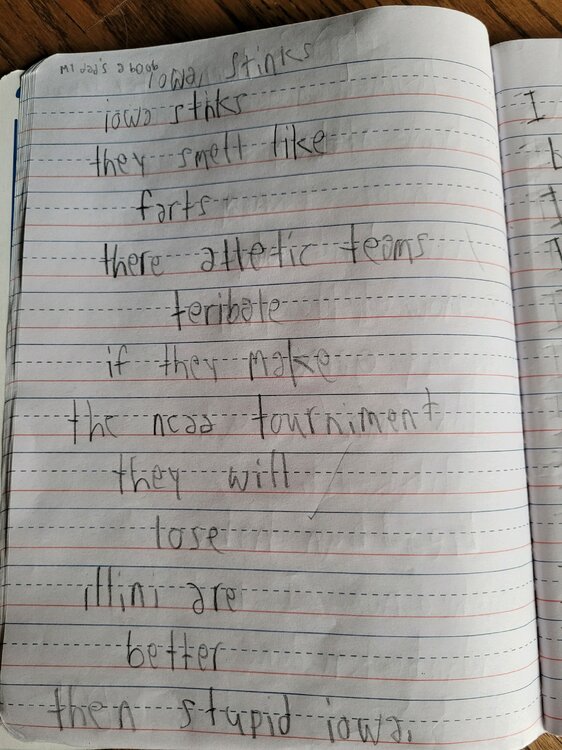 iowa stinks
iowa stnks
they smell like
farts
there atletic teams
terible
if they make
the ncaa tourniment
they will
lose
illini are
better
then stupid iowa.